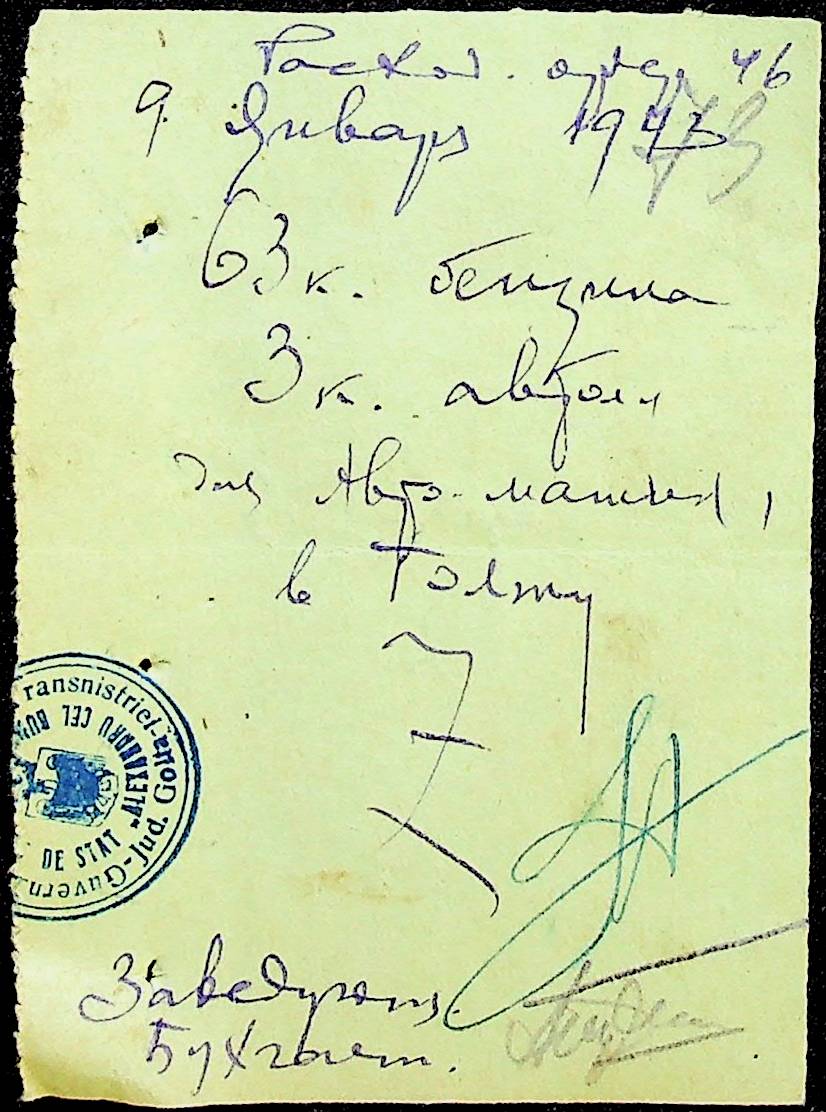 Расход. ордер 46
9 Январ 1943
63 к. бензина
3 к. автол
для Авто-машин,
в Голту
Заведующ.
Бухгалт.
ransnistriei-Jud. Golta-Guvern
DE STAT „ALEXANDRU CEL BUN